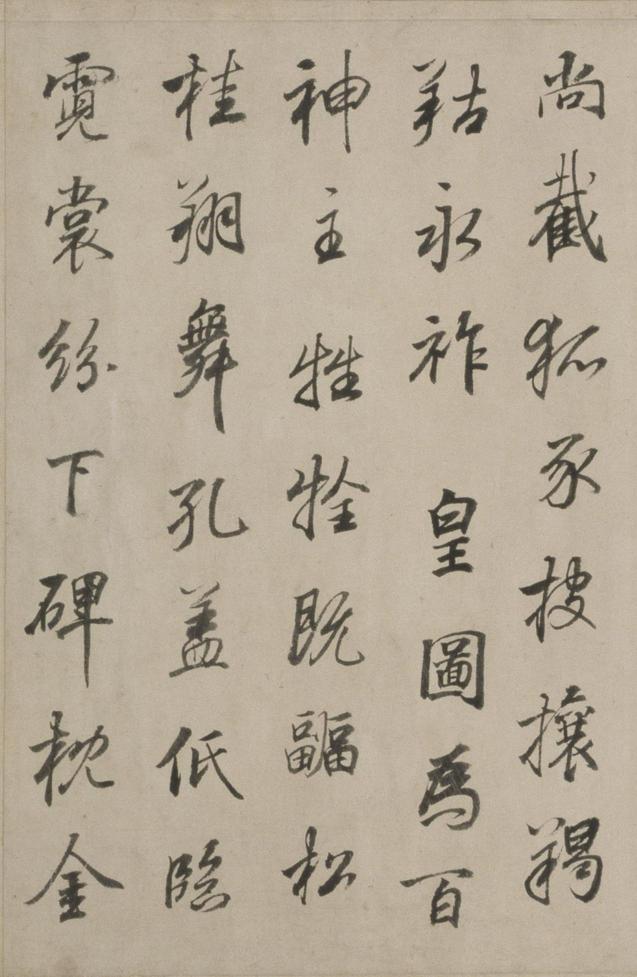 尚截狐豕披攘羯
羖永祚皇圖為百
神主牲牷既疈松
桂翔舞孔蓋低臨
霓裳紛下碑枕金